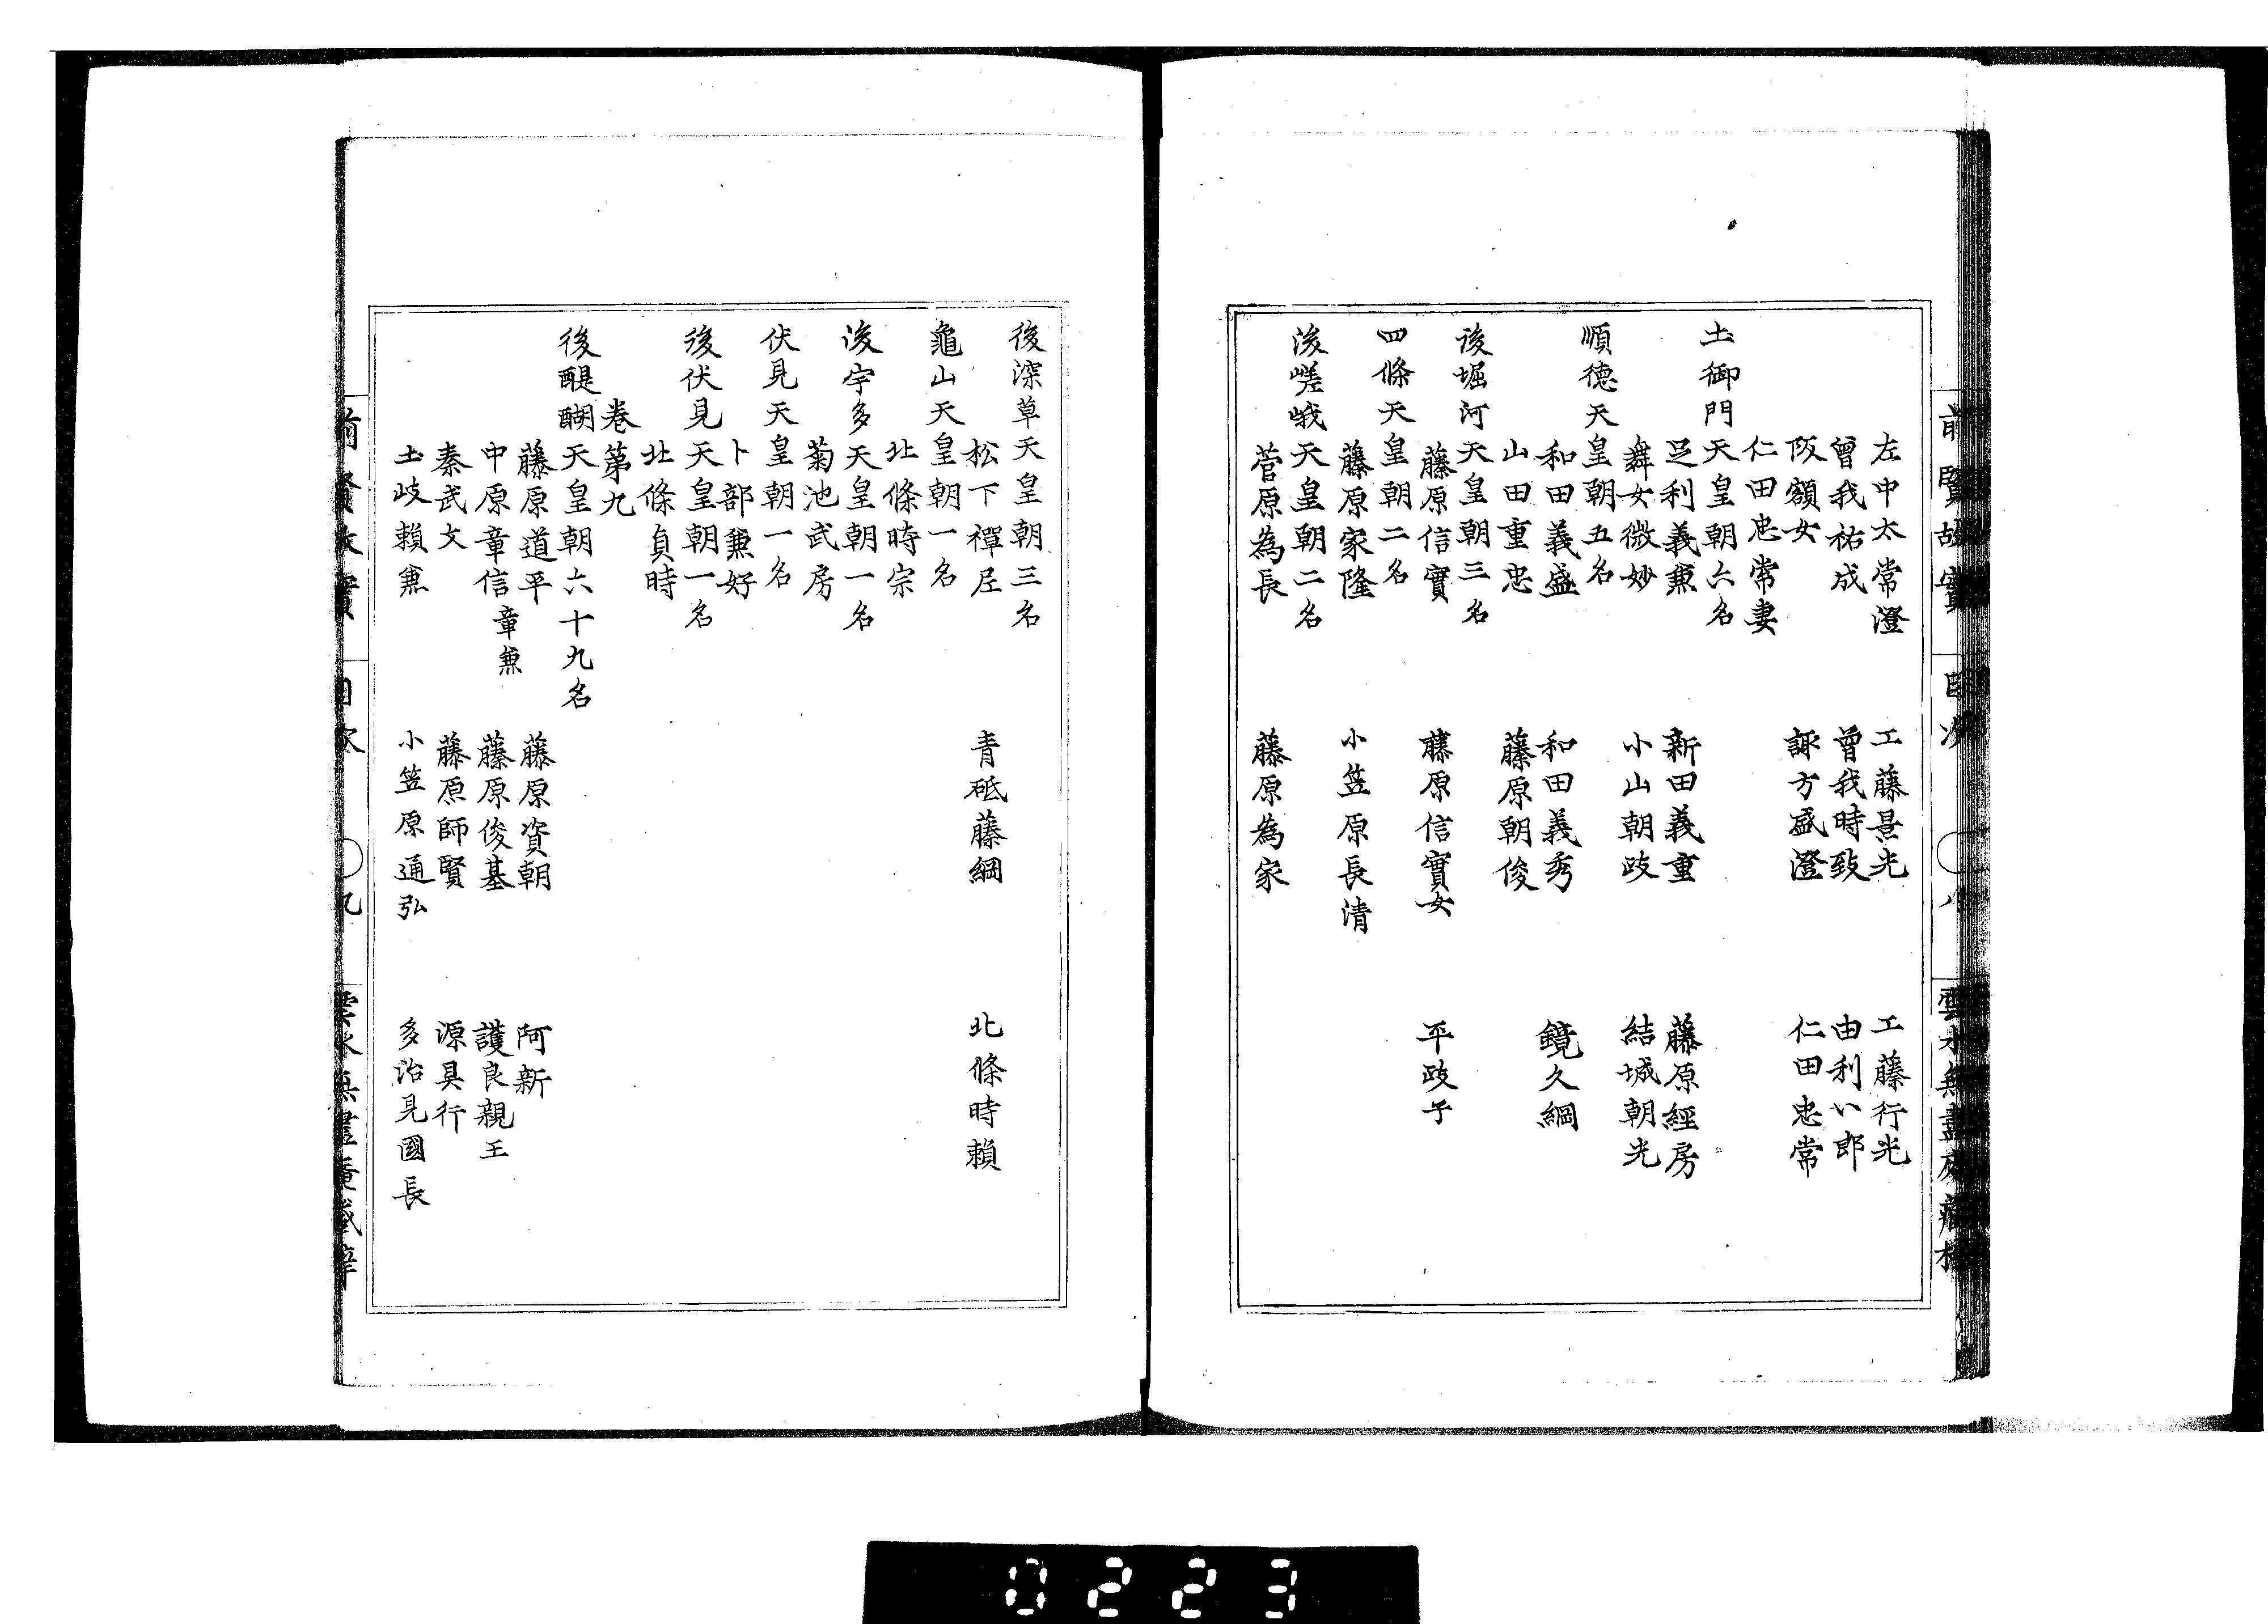 左中太常澄　工藤景光　工藤行光
曾我祐成　曾我時致　由利八郎
阪額女　諏方盛澄　仁田忠常
仁田忠常妻
土御門天皇朝六名
足利義兼　新田義重　藤原經房
舞女微妙　小山朝政　結城朝光
順德天皇朝五名
和田義盛　和田義秀　鏡久綱
山田重忠　藤原朝俊
後堀河天皇朝三名
藤原信實　藤原信實女　平政子
四條天皇朝二名
藤原家隆　小笠原長清
後嵯峨天皇朝二名
菅原為長　藤原為家
前賢故實　目次　〇八
後深草天皇朝三名
松下禪尼　青砥藤綱　北條時賴
龜山天皇朝一名
北條時宗
後宇多天皇朝一名
菊池武房
伏見天皇朝一名
卜部兼好
後伏見天皇朝一名
北條貞時
卷第九
後醍醐天皇朝六十九名
藤原道平　藤原資朝　阿新
中原章信章兼　藤原俊基　護良親王
秦武文　藤原師賢　源具行
土岐賴兼　小笠原通弘　多治見國長
前賢故實　目次　〇九
0223